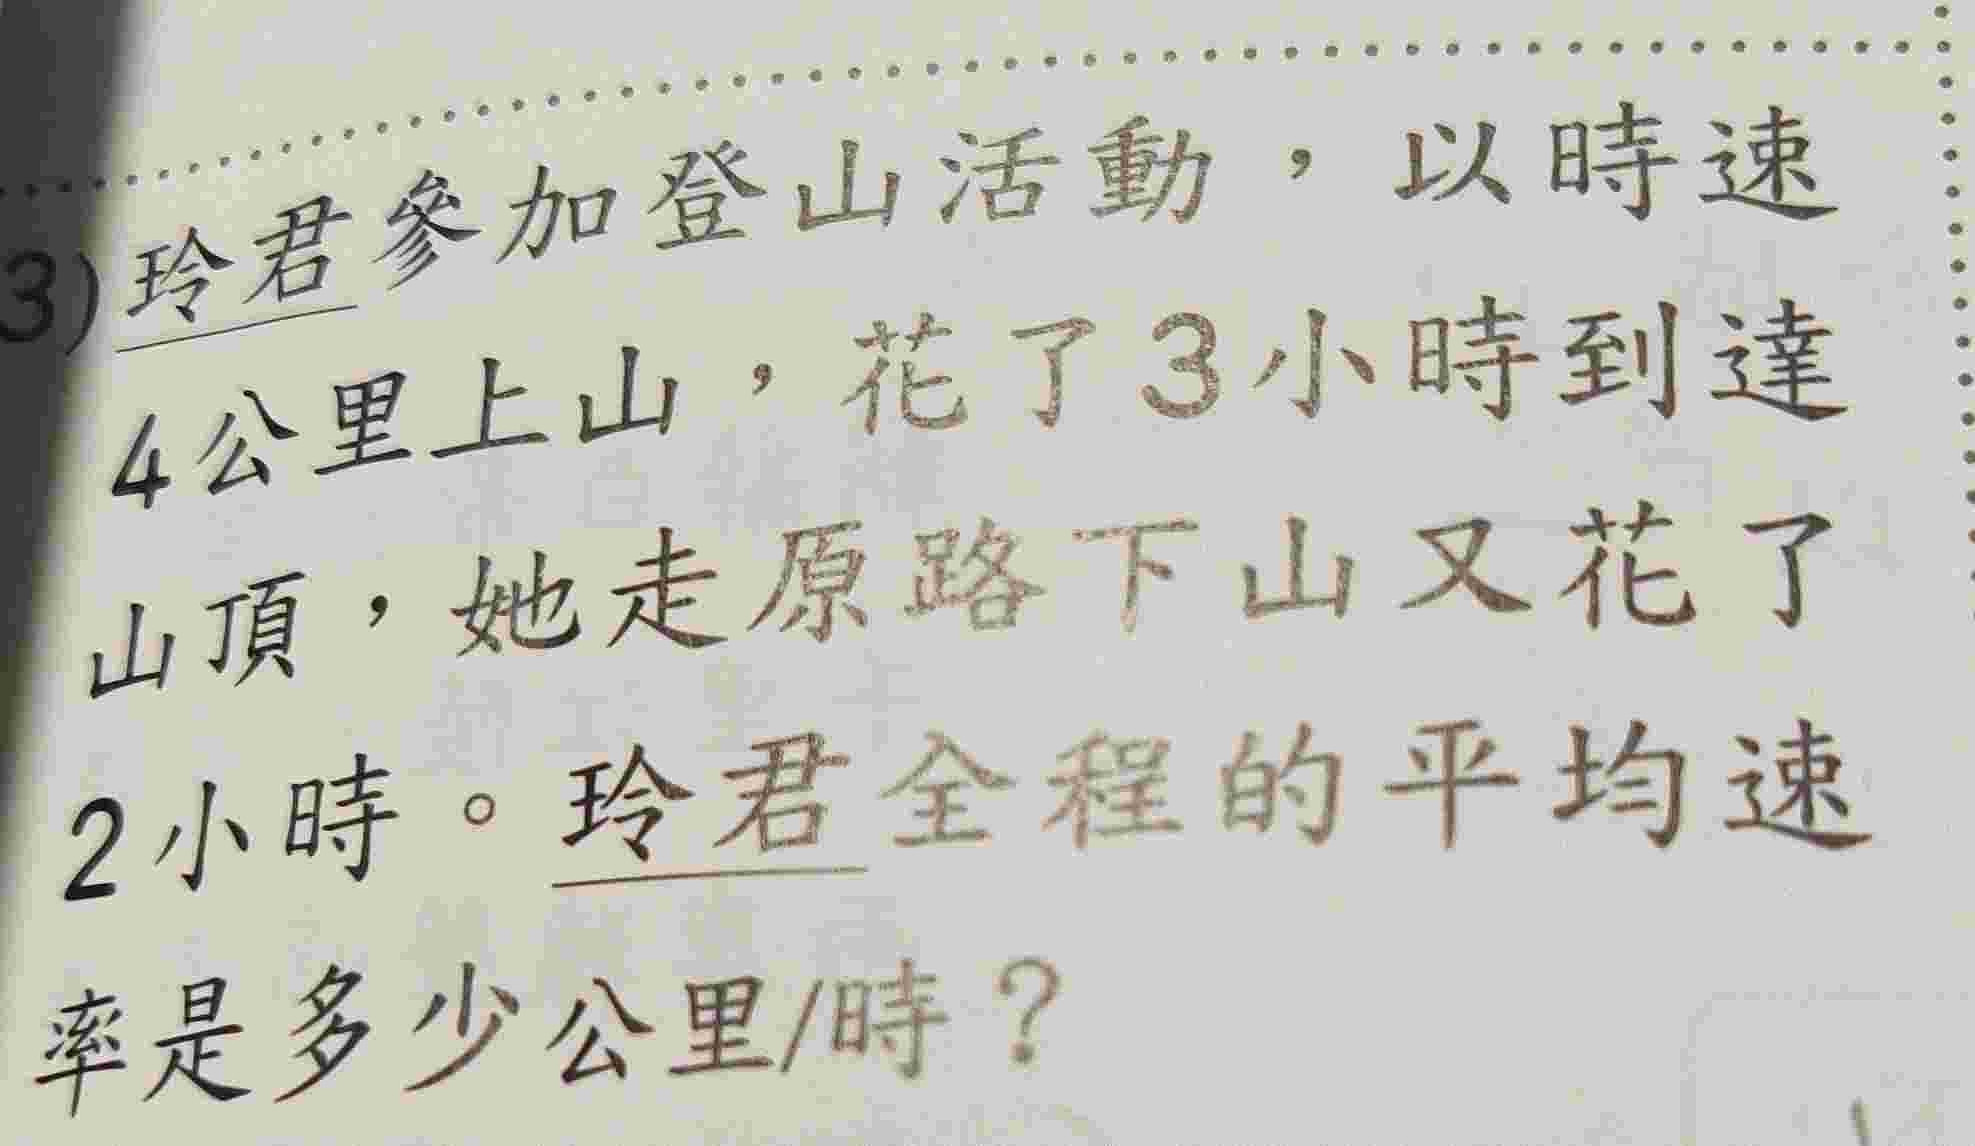 3)玲君參加登山活動,以時速
4公里上山,花了3小時到達
山頂,她走原路下山又花了
2小時。玲君全程的平均速
率是多少公里/時?